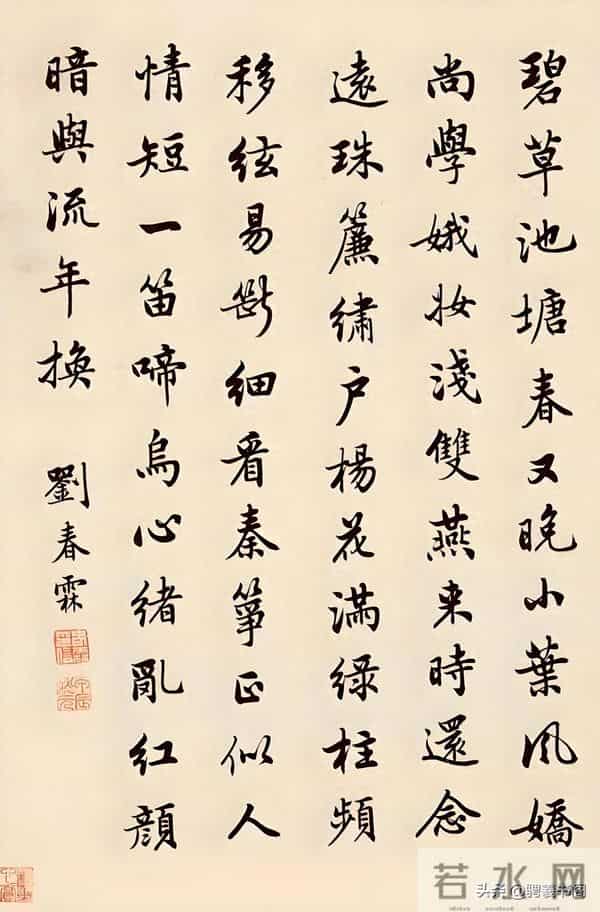 碧草池塘春又晚小葉風嬌
尚學娥妝淺雙燕来時還念
遠珠簾繡户楊花滿綠柱頻
移絃易斷細看秦箏正似人
情短一笛啼烏心緒亂紅顔
暗與流年換
劉春霖
若水网